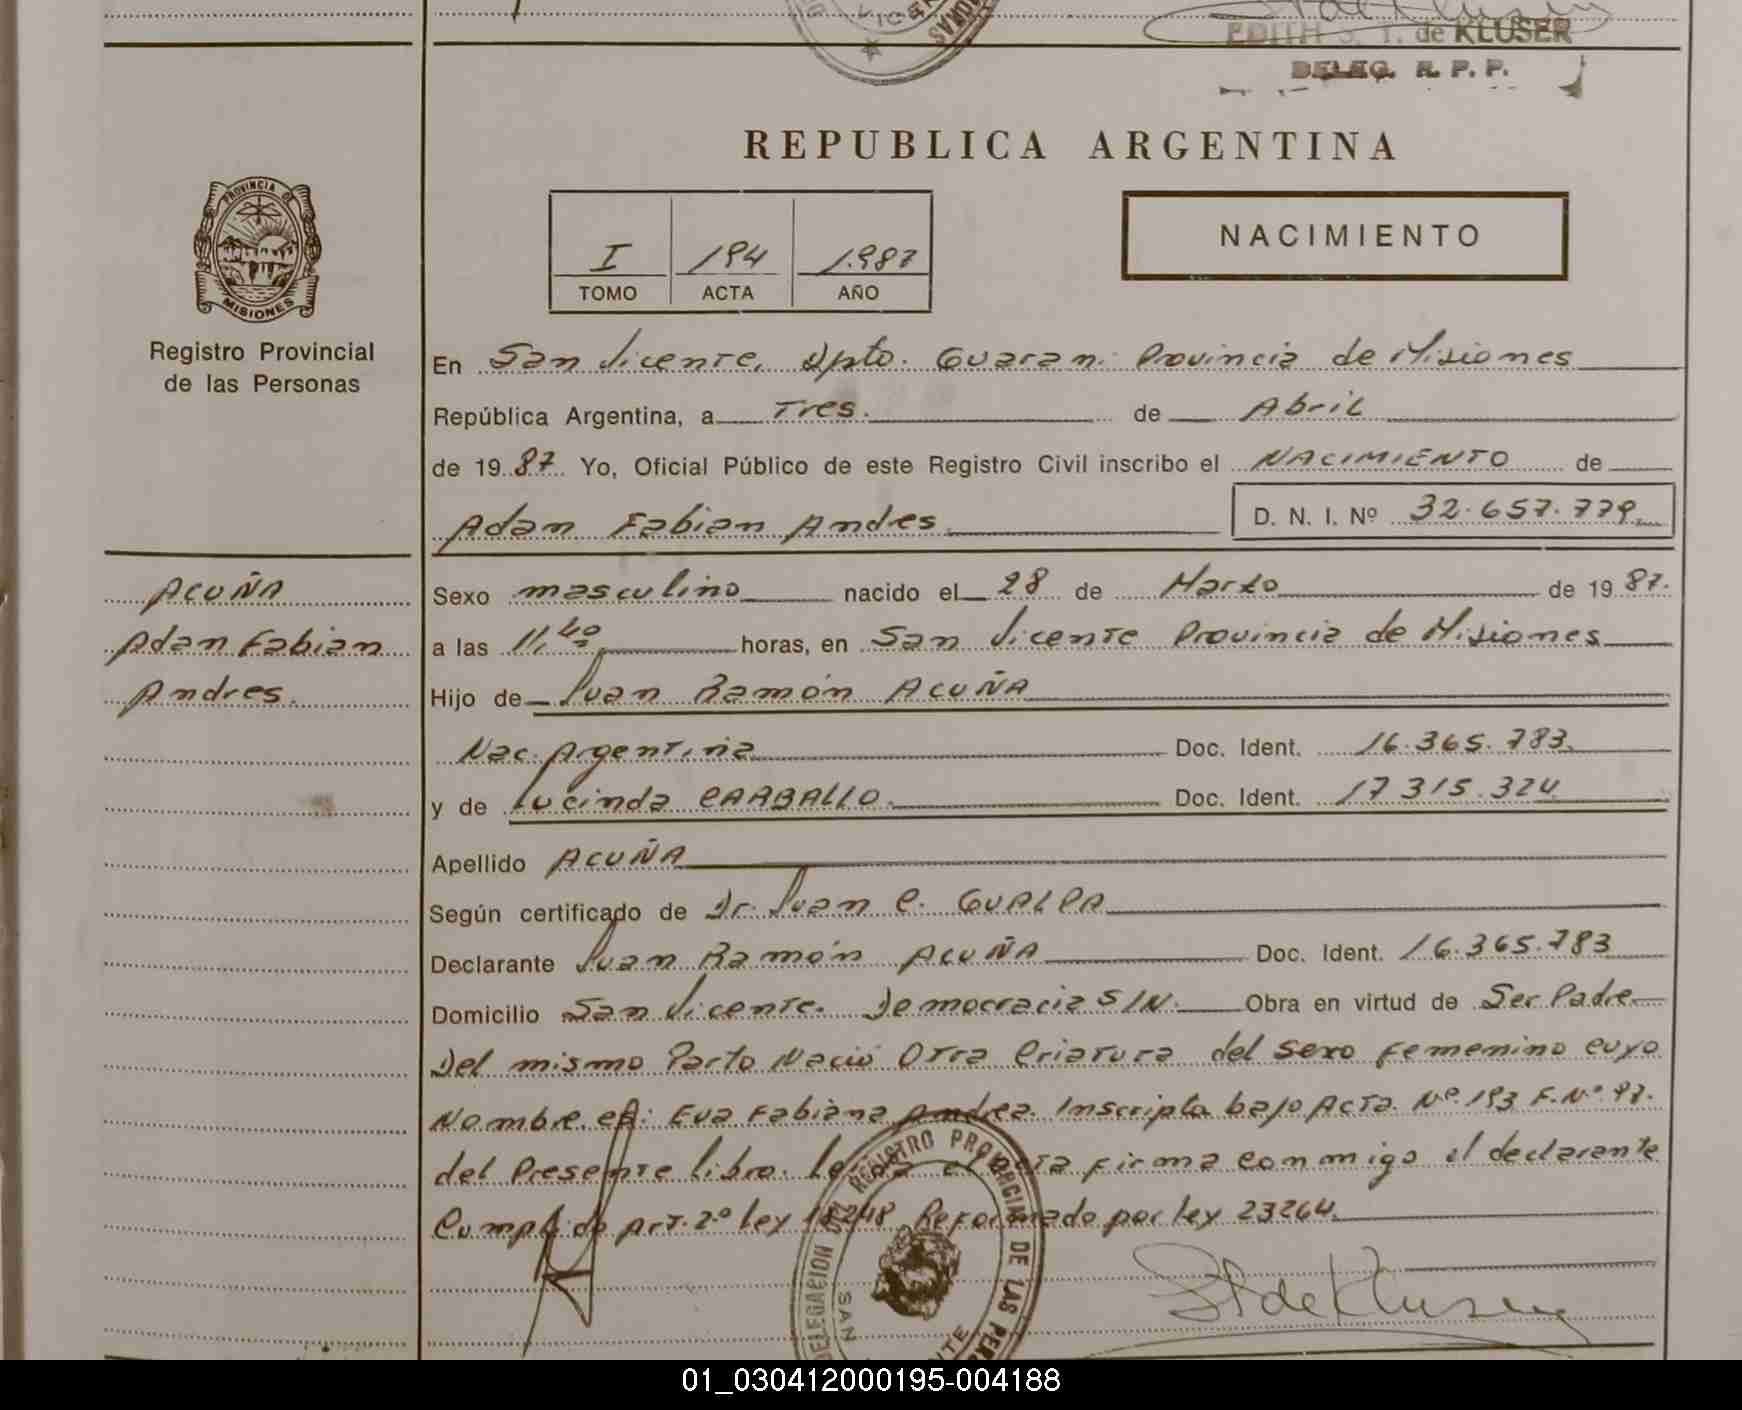 LICEN
EDITH S. T. de KLUSER
DELEG. R. P. P.
REPUBLICA ARGENTINA
PROVINCIA DE
MISIONES
Registro Provincial
de las Personas
I 194 1.987
TOMO ACTA AÑO
NACIMIENTO
En San Vicente, Dpto. Guarani Provincia de Misiones
República Argentina, a Tres. de Abril
de 19 87 Yo, Oficial Público de este Registro Civil inscribo el NACIMIENTO de
Adan Fabian Andres D. N. I. Nº 32.657.779
ACUÑA
Adan Fabian
Andres.
Sexo masculino nacido el 28 de Marzo de 19 87.
a las 11,40 horas, en San Vicente Provincia de Misiones
Hijo de Juan Ramón ACUÑA
Nac. Argentina Doc. Ident. 16.365.783.
y de Lucinda CARBALLO Doc. Ident. 17 315.324
Apellido ACUÑA
Según certificado de Dr. Juan C. GUALPA
Declarante Juan Ramón ACUÑA Doc. Ident. 16.365.783
Domicilio San Vicente. Democracia S/N. Obra en virtud de Ser Padre
Del mismo Parto Nació Otra Criatura del sexo Femenino cuyo
Nombre es: Eva Fabiana Andrea. Inscripta bajo Acta Nº 193 F. Nº 97.
del Presente libro. Leida el Acta firma conmigo el declarante
Cumplido Art. 2º ley 18248 Reformado por ley 23264.
DELEGACION DEL REGISTRO PROVINCIAL DE LAS PERS
SAN NTE
St de Kluser
01_030412000195-004188